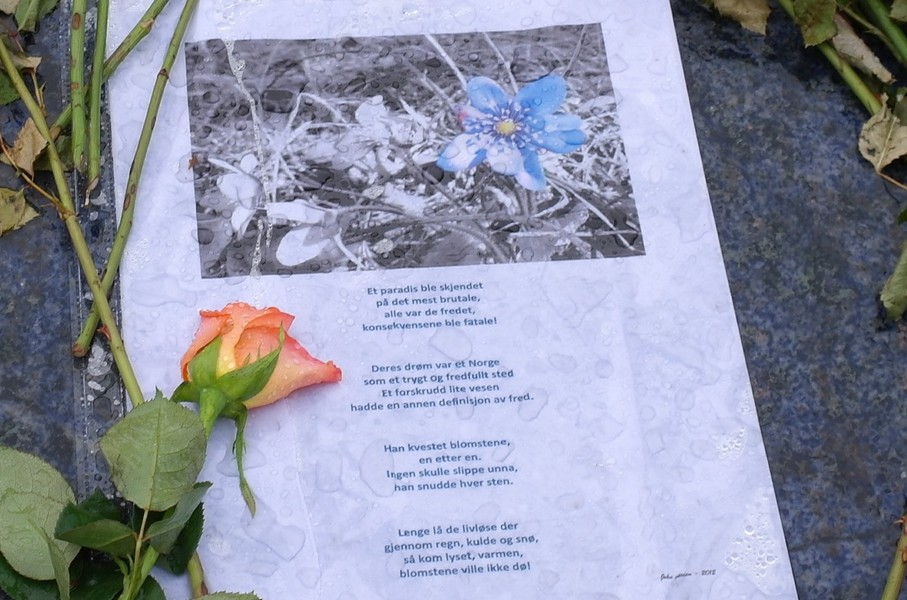 Et paradis ble skjendet
på det mest brutale,
alle var de fredet,
konsekvensene ble fatale!
Deres drøm var et Norge
som et trygt og fredfullt sted
Et forskrudd lite vesen
hadde en annen definisjon av fred.
Han kvestet blomstene,
en etter en.
Ingen skulle slippe unna,
han snudde hver sten.
Lenge lå de livløse der
gjennom regn, kulde og snø,
så kom lyset, varmen,
blomstene ville ikke dø!
- 2012